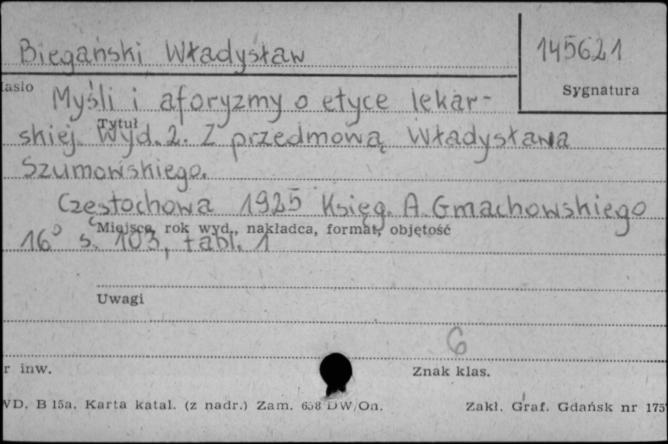 Biegański Władysław
145621
Sygnatura
Myśli i aforyzmy o etyce lekar-
Tytuł
skiej Wyd. 2. Z przedmową Władysława
Szumowskiego.
Częstochowa 1925 Księg. A. Gmachowskiego
Miejsce, rok wyd., nakładca, format, objętość
16° s. 103, tabl. 1
Uwagi
6
r inw.
Znak klas.
WD. B 15a. Karta katal. (z nadr.) Zam. 658 DW/On.
Zakł. Graf. Gdańsk nr 175